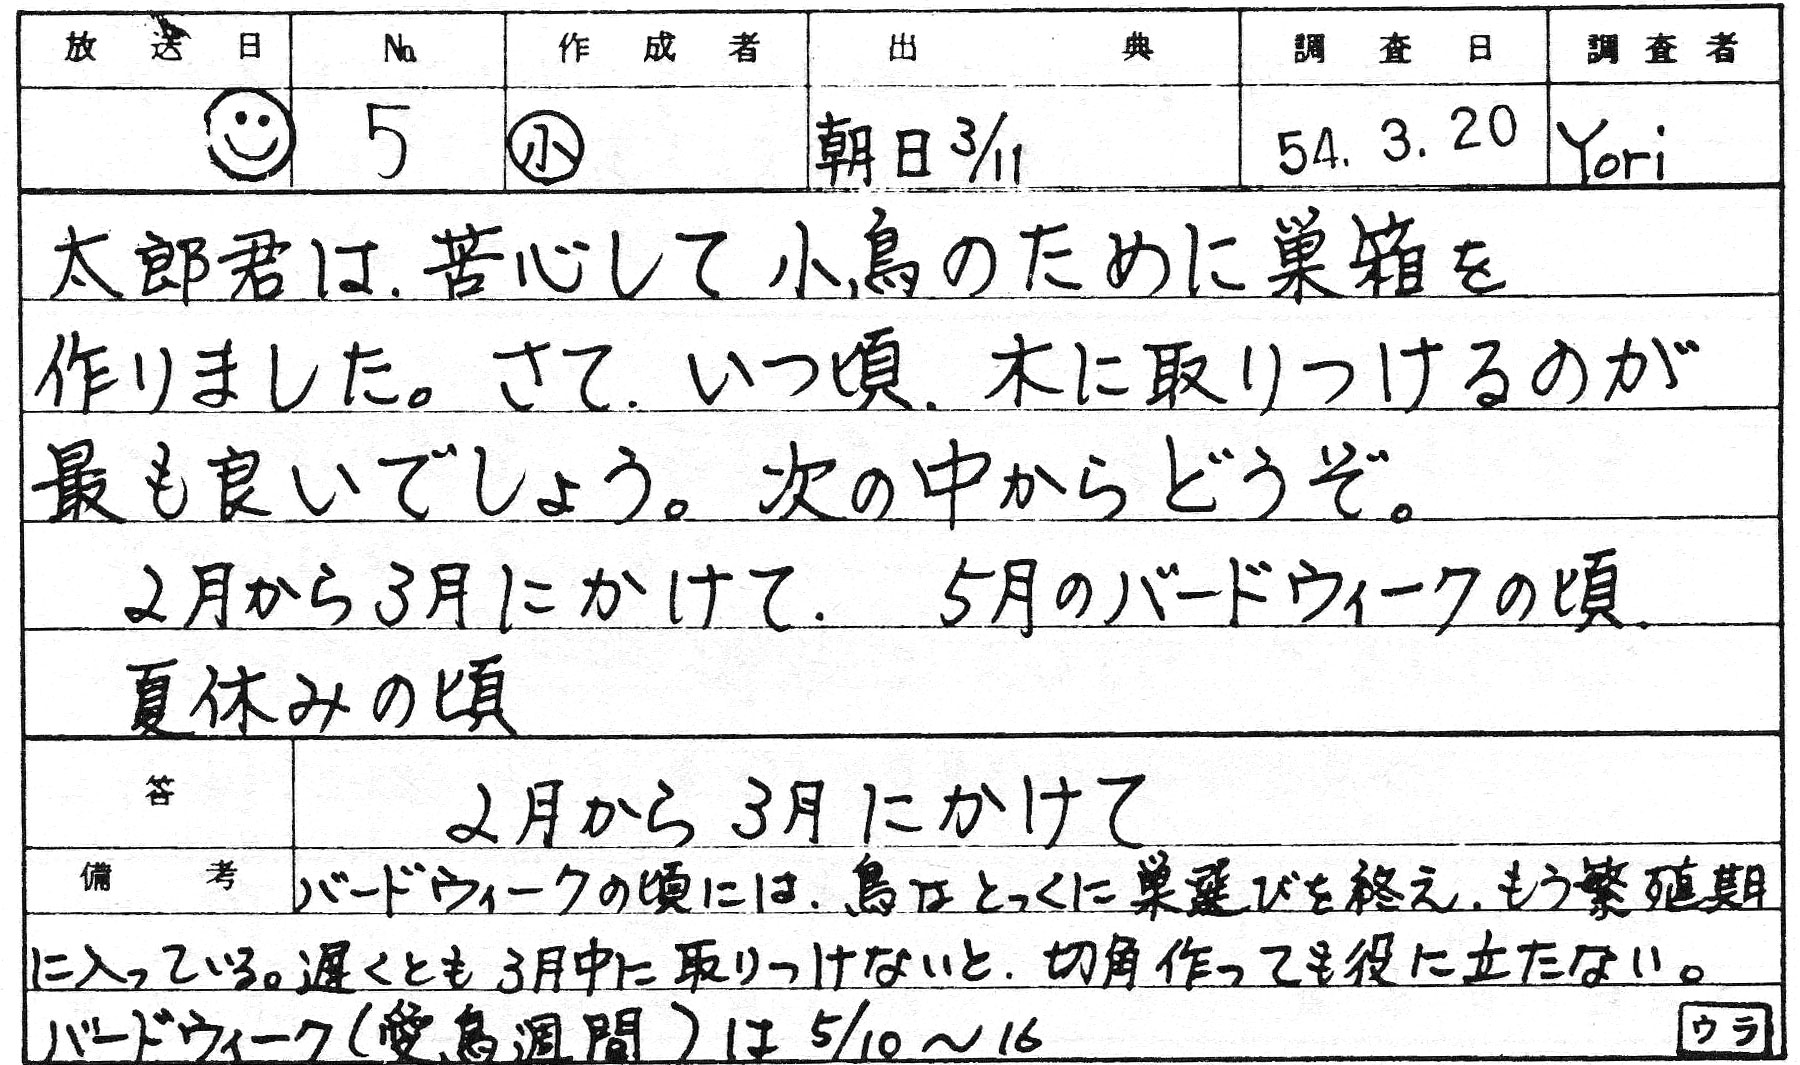 放送日 No. 作成者 出典 調査日 調査者
5 小 朝日3/11 54.3.20 Yori
太郎君は、苦心して小鳥のために巣箱を
作りました。さて、いつ頃、木に取りつけるのが
最も良いでしょう。次の中からどうぞ。
2月から3月にかけて、 5月のバードウィークの頃、
夏休みの頃
答 2月から3月にかけて
備考 バードウィークの頃には、鳥はとっくに巣選びを終え、もう繁殖期
に入っている。遅くとも3月中に取りつけないと、切角作っても役に立たない。
バードウィーク(愛鳥週間)は5/10〜16 ウラ